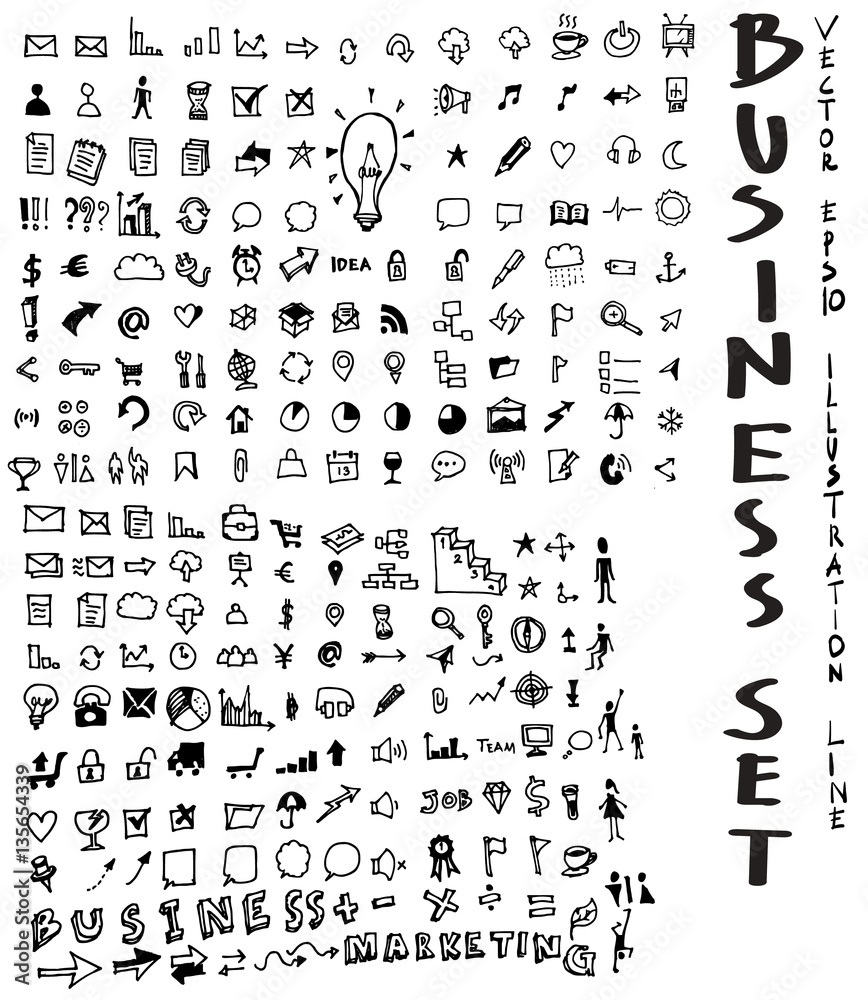 BUSINESS SET
VECTOR EPS10 ILLUSTRATION LINE
!!! ???
$ €
IDEA
!
@
13
1 2 3
€
$
¥
@
TEAM
JOB
$
BUSINESS + - × ÷ =
MARKETING
Adobe Stock
135654339